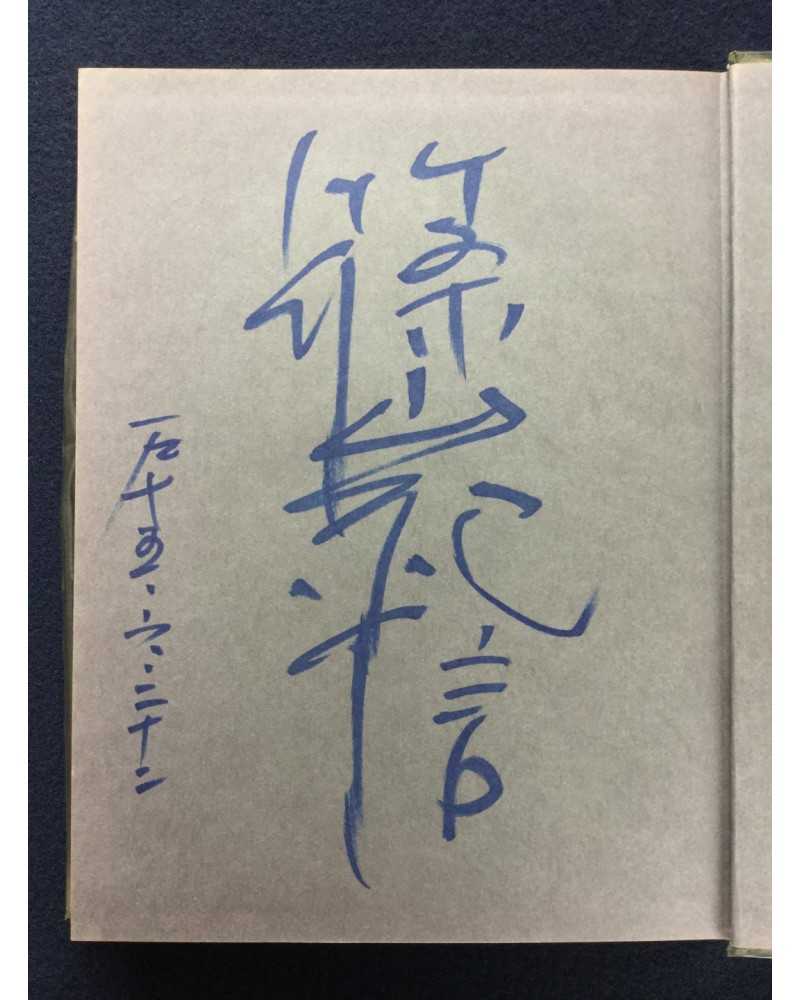 篠山紀信
一九七五・六・二十二